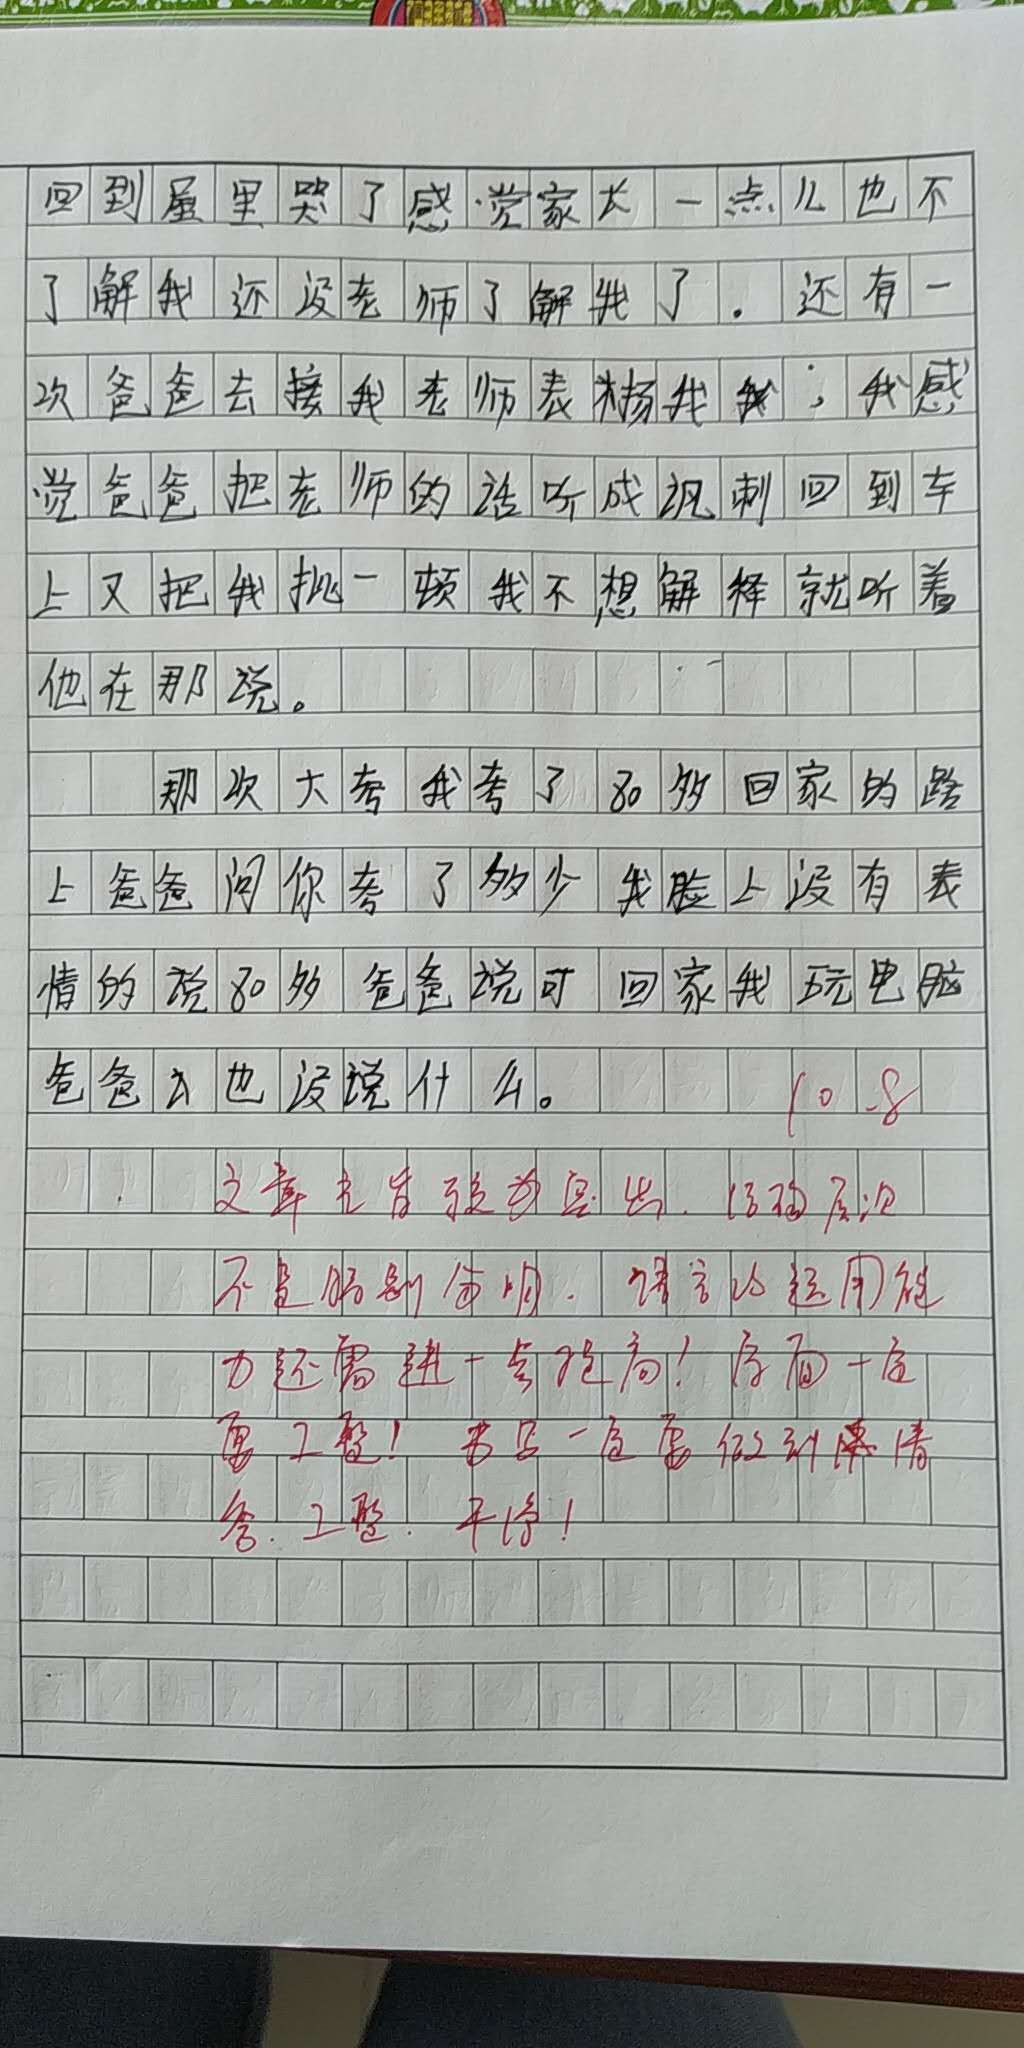 回到屋里哭了感觉家长一点儿也不
了解我还没老师了解我了。还有一
次爸爸去接我老师表扬我我，我感
觉爸爸把老师的话听成讽刺回到车
上又把我批一顿我不想解释就听着
他在那说。
那次大考我考了80多回家的路
上爸爸问你考了多少我脸上没有表
情的说80多爸爸说可回家我玩电脑
爸爸也没说什么。
10.8
文章主旨较为突出.结构层次
不是特别分明.语言的运用能
力还需进一步提高！卷面一定
要工整！书写一定要做到清
楚.工整.干净！